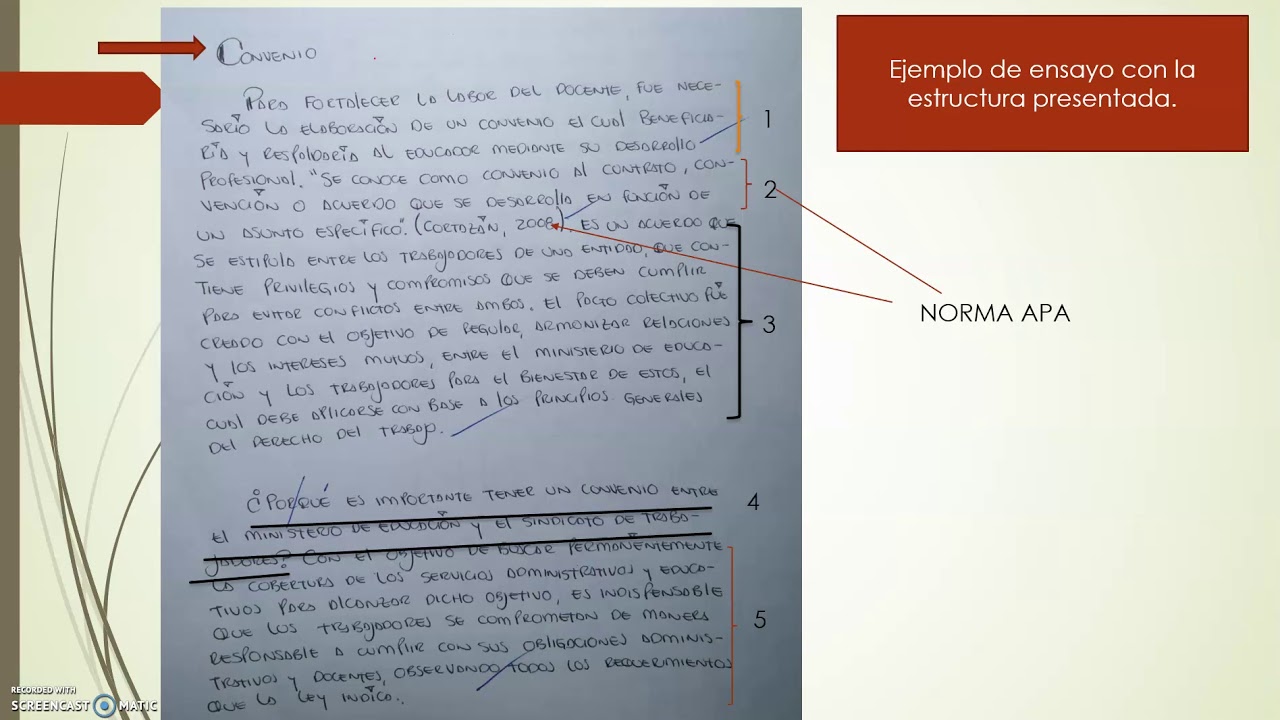 CONVENIO
PARA FORTALECER LA LABOR DEL DOCENTE, FUE NECE-
SARIO LA ELABORACIÓN DE UN CONVENIO EL CUAL BENEFICIA-
RÍA Y RESPALDARÍA AL EDUCADOR MEDIANTE SU DESARROLLO
PROFESIONAL. "SE CONOCE COMO CONVENIO AL CONTRATO, CON-
VENCIÓN O ACUERDO QUE SE DESARROLLA EN FUNCIÓN DE
UN ASUNTO ESPECÍFICO". (CORTAZÁN, 2008). ES UN ACUERDO QUE
SE ESTIPULA ENTRE LOS TRABAJADORES DE UNA ENTIDAD, QUE CON-
TIENE PRIVILEGIOS Y COMPROMISOS QUE SE DEBEN CUMPLIR
PARA EVITAR CONFLICTOS ENTRE AMBOS. EL PACTO COLECTIVO FUÉ
CREADO CON EL OBJETIVO DE REGULAR, ARMONIZAR RELACIONES
Y LOS INTERESES MUTUOS, ENTRE EL MINISTERIO DE EDUCA-
CIÓN Y LOS TRABAJADORES PARA EL BIENESTAR DE ESTOS, EL
CUAL DEBE APLICARSE CON BASE A LOS PRINCIPIOS GENERALES
DEL DERECHO DEL TRABAJO.
¿PORQUÉ ES IMPORTANTE TENER UN CONVENIO ENTRE
EL MINISTERIO DE EDUCACIÓN Y EL SINDICATO DE TRABA-
JADORES? CON EL OBJETIVO DE BUSCAR PERMANENTEMENTE
LA COBERTURA DE LOS SERVICIOS ADMINISTRATIVOS Y EDUCA-
TIVOS PARA ALCANZAR DICHO OBJETIVO, ES INDISPENSABLE
QUE LOS TRABAJADORES SE COMPROMETAN DE MANERA
RESPONSABLE A CUMPLIR CON SUS OBLIGACIONES ADMINIS-
TRATIVOS Y DOCENTES, OBSERVANDO TODOS LOS REQUERIMIENTOS
QUE LA LEY INDICA.
1
2
3
4
5
Ejemplo de ensayo con la
estructura presentada.
NORMA APA
RECORDED WITH
SCREENCAST MATIC